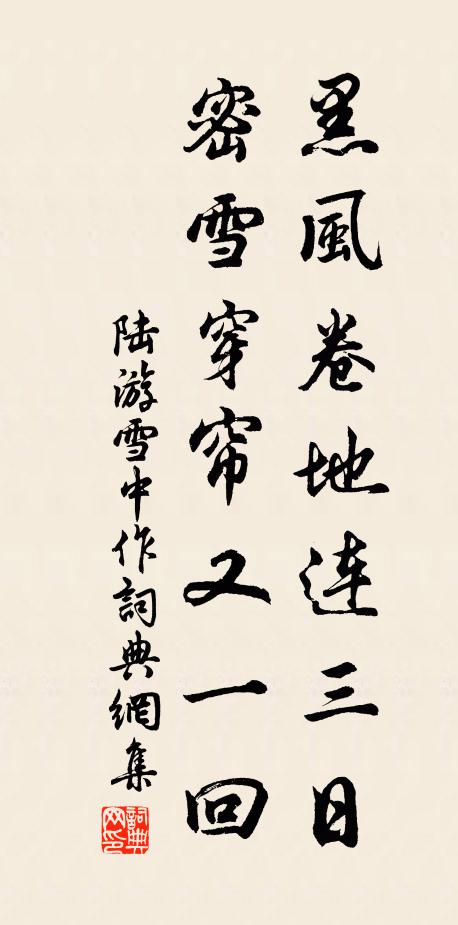 黑風卷地連三日
密雪穿帘又一回
陸游雪中作詞典網集
詞典网印